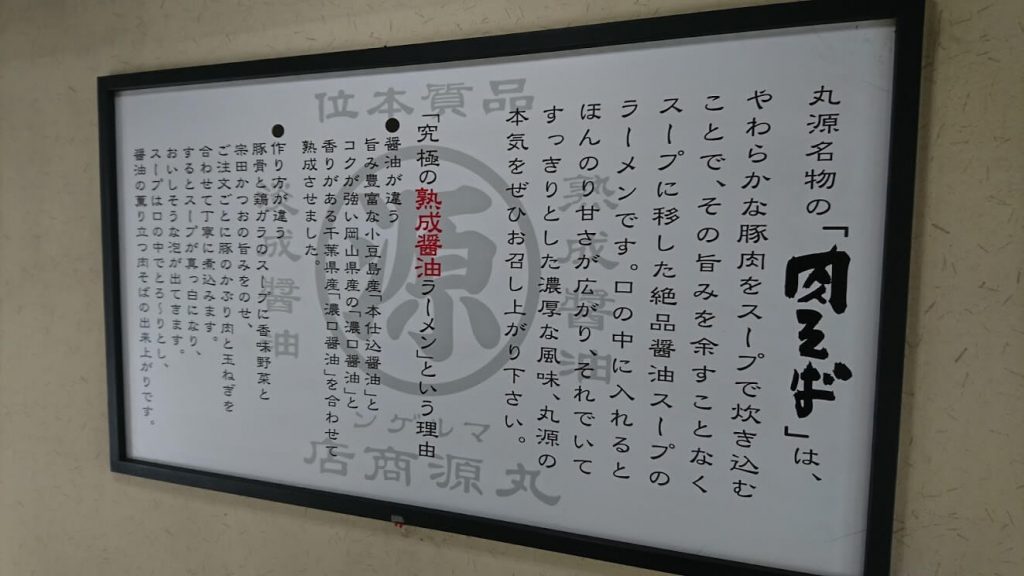 丸源名物の「肉そば」は、
やわらかな豚肉をスープで炊き込む
ことで、その旨みを余すことなく
スープに移した絶品醤油スープの
ラーメンです。口の中に入れると
ほんのり甘さが広がり、それでいて
すっきりとした濃厚な風味、丸源の
本気をぜひお召し上がり下さい。
「究極の熟成醤油ラーメン」という理由
●醤油が違う
旨み豊富な小豆島産「本仕込醤油」と
コクが強い岡山県産の「濃口醤油」と
香りがある千葉県産「濃口醤油」を合わせて
熟成させました。
●作り方が違う
豚骨と鶏ガラのスープに香味野菜と
宗田かつおの旨みをのせ、
ご注文ごとに豚のかぶり肉と玉ねぎを
合わせて丁寧に煮込みます。
するとスープが真っ白になり、
おいしそうな泡が出てきます。
スープは口の中でとろ〜りとし、
醤油の薫り立つ肉そばの出来上がりです。
品質本位
熟成醤油
源
熟成醤油
マルゲンング
丸源商店